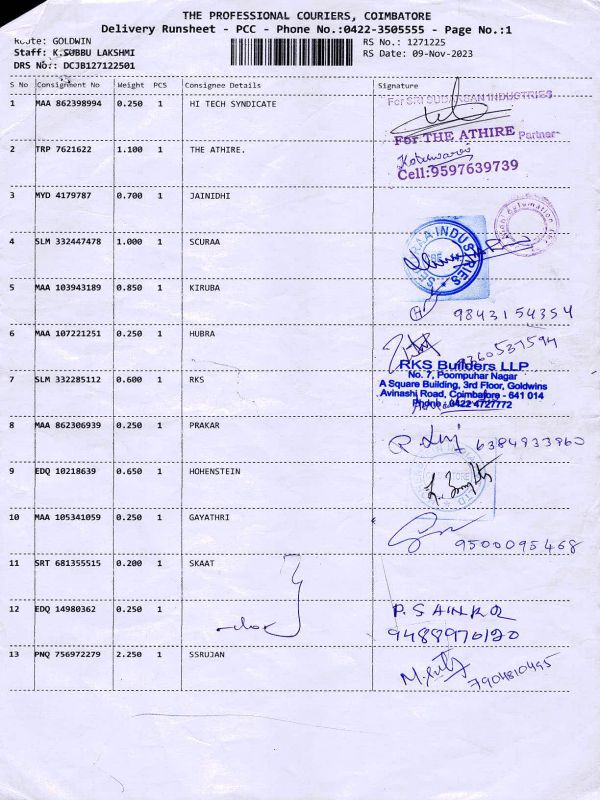 THE PROFESSIONAL COURIERS, COIMBATORE
Delivery Runsheet - PCC - Phone No.:0422-3505555 - Page No.:1
Route: GOLDWIN
RS No.: 1271225
Staff: K.SUBBU LAKSHMI
RS Date: 09-Nov-2023
DRS No:: DCJB127122501
S No Consignment No Weight PCS Consignee Details Signature
1 MAA 862398994 0.250 1 HI TECH SYNDICATE
For SRI SUDARSAN INDUSTRIES
Partner
2 TRP 7621622 1.100 1 THE ATHIRE.
For THE ATHIRE
Cell:9597639739
3 MYD 4179787 0.700 1 JAINIDHI
4 SLM 332447478 1.000 1 SCURAA
INDUSTRIES
5 MAA 103943189 0.850 1 KIRUBA
9843154354
6 MAA 107221251 0.250 1 HUBRA
7 SLM 332285112 0.600 1 RKS
RKS Builders LLP
No. 7, Poompuhar Nagar
A Square Building, 3rd Floor, Goldwins
Avinashi Road, Coimbatore - 641 014
Phone : 0422 4727772
8 MAA 862306939 0.250 1 PRAKAR
6384933960
9 EDQ 10218639 0.650 1 HOHENSTEIN
10 MAA 105341059 0.250 1 GAYATHRI
9500095468
11 SRT 681355515 0.200 1 SKAAT
12 EDQ 14980362 0.250 1
9488970120
13 PNQ 756972279 2.250 1 SSRUJAN
7904810495